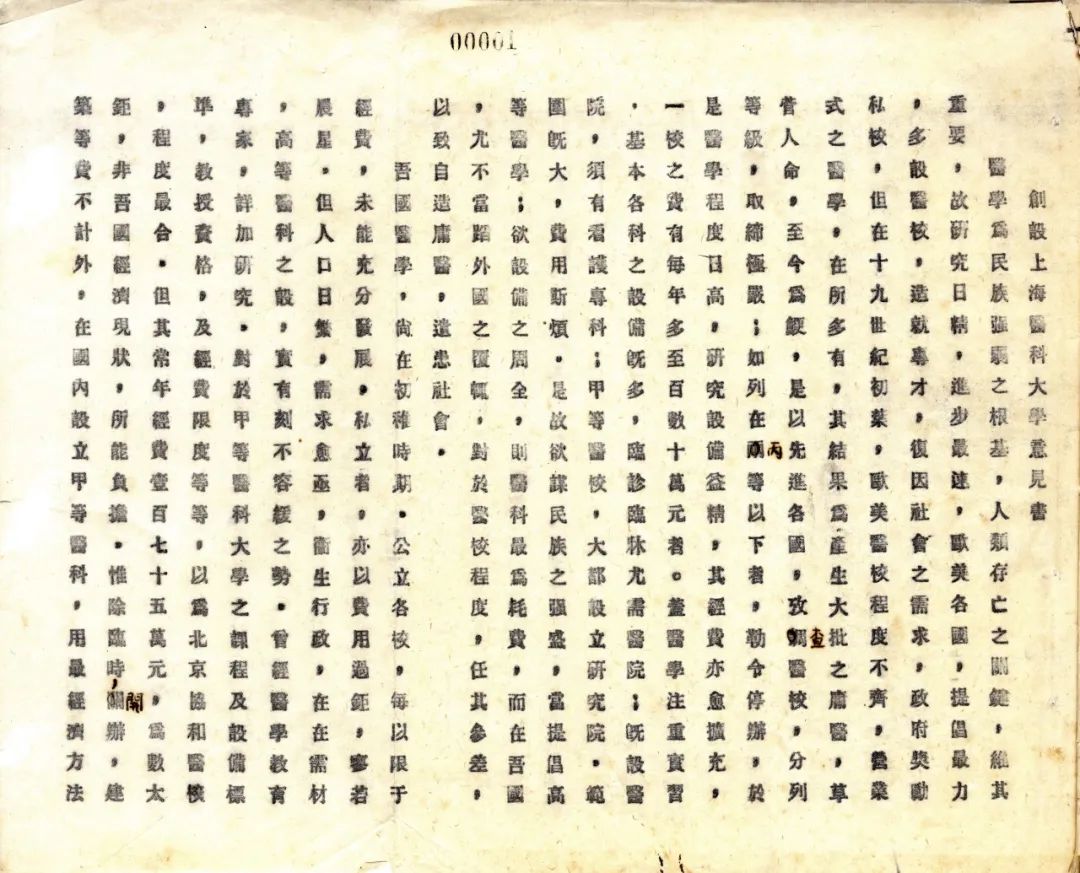 00001
創設上海醫科大學意見書
醫學爲民族强弱之根基，人類存亡之關鍵，維其
重要，故研究日精，進步最速，歐美各國，提倡最力
，多設醫校，造就專才，復因社會之需求，政府獎勵
私校，但在十九世紀初葉，歐美醫校程度不齊，營業
式之醫學，在所多有，其結果爲產生大批之庸醫，草
菅人命，至今爲鯁，是以先進各國，攷查醫校，分列
等級，取締極嚴；如列在丙等以下者，勒令停辦，於
是醫學程度日高，研究設備益精，其經費亦愈擴充，
一校之費有每年多至百數十萬元者。蓋醫學注重實習
，基本各科之設備旣多，臨診臨牀尤需醫院；旣設醫
院，須有看護專科；甲等醫校，大都設立研究院，範
圍旣大，費用斯煩。是故欲謀民族之强盛，當提倡高
等醫學；欲設備之周全，則醫科最爲耗費，而在吾國
，尤不當蹈外國之覆轍，對於醫校程度，任其參差，
以致自造庸醫，遺患社會。
吾國醫學，尙在初稚時期。公立各校，每以限于
經費，未能充分發展，私立者，亦以費用過鉅，寥若
晨星。但人口日繁，需求愈亟，衞生行政，在在需材
，高等醫科之設，實有刻不容緩之勢。曾經醫學敎育
專家，詳加研究。對於甲等醫科大學之課程及設備標
準，敎授資格，及經費限度等等，以爲北京協和醫校
，程度最合。但其常年經費壹百七十五萬元，爲數太
鉅，非吾國經濟現狀，所能負擔。惟除臨時，開辦，建
築等費不計外，在國內設立甲等醫科，用最經濟方法